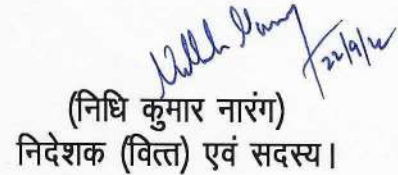 22/9/22
(निधि कुमार नारंग)
निदेशक (वित्त) एवं सदस्य।